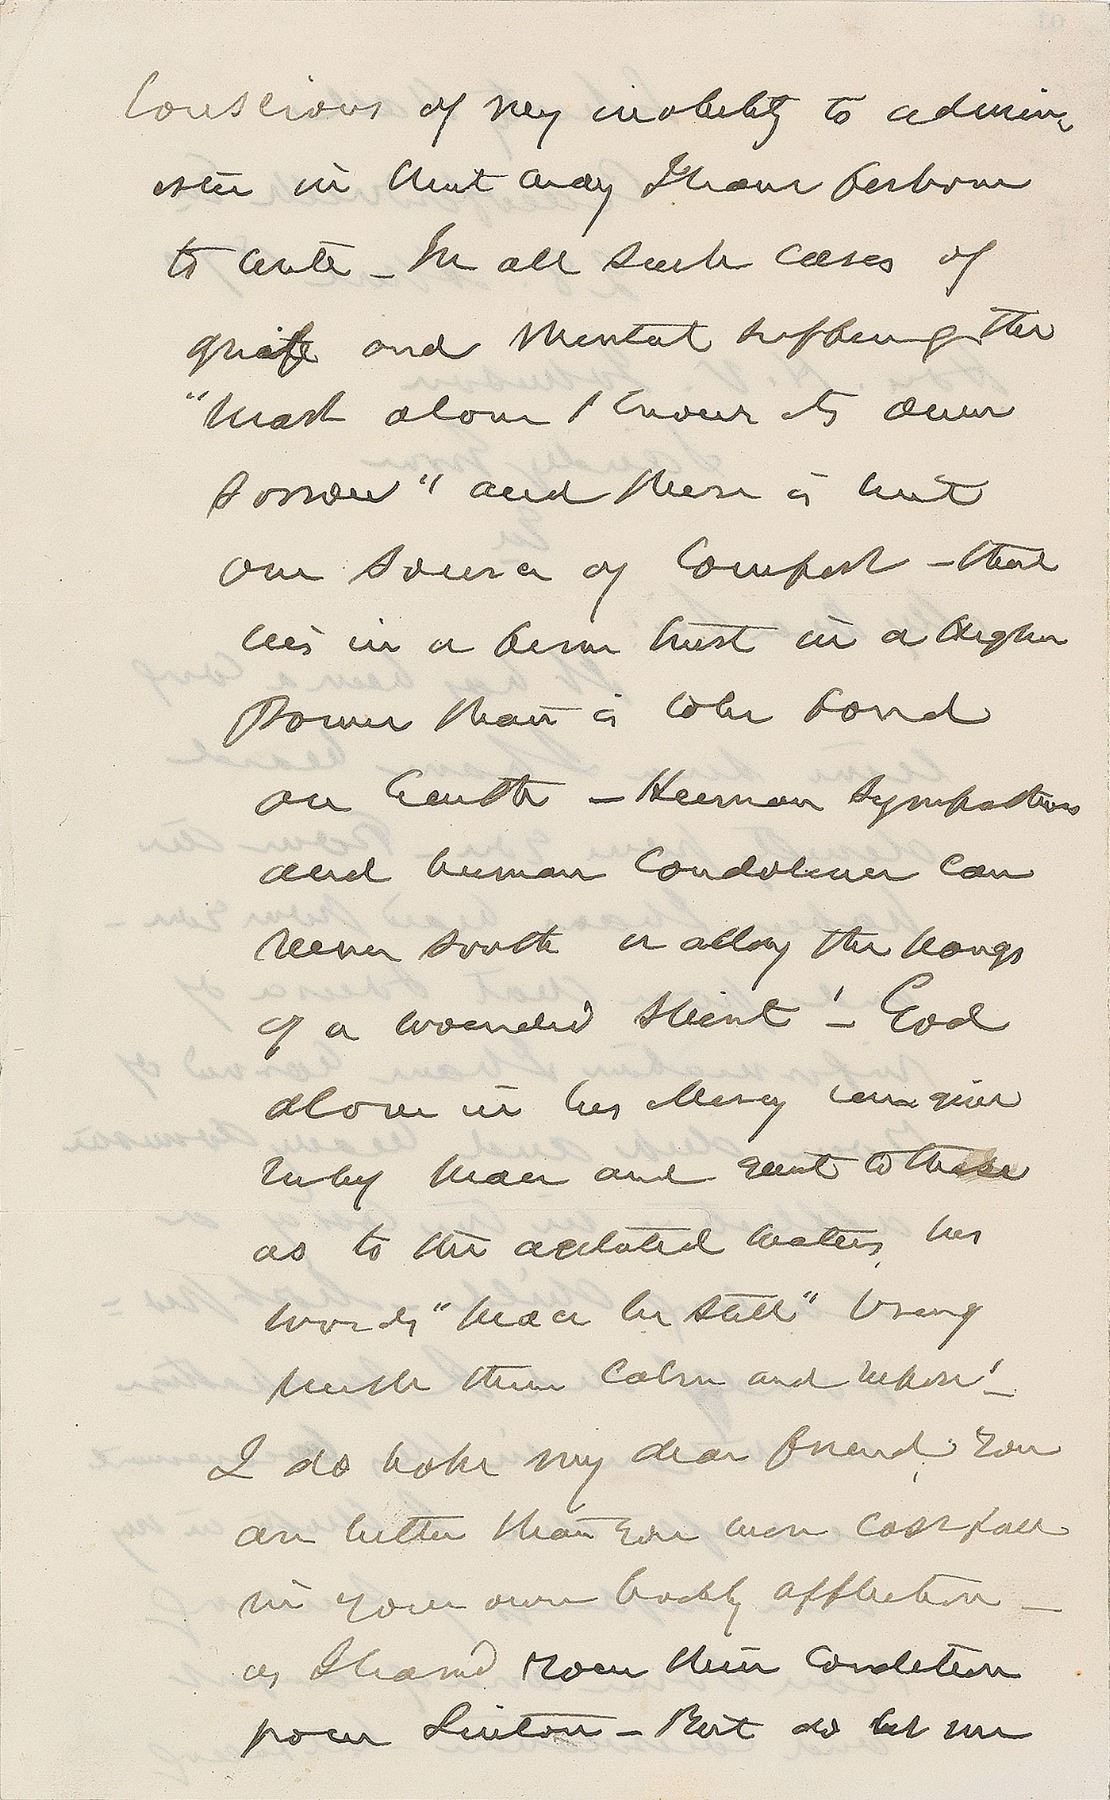 Conscious of my inability to admin-
ister in that way I have forborne
to write - In all such cases of
grief and mental suffering the
"heart alone knows its own
sorrow" and there is but
one source of comfort - that
lies in a firm trust in a higher
Power than is to be found
on Earth - Human sympathies
and human condolence can
never sooth or allay the pangs
of a wounded spirit! - God
alone in his Mercy can give
peace and to these
as to the waters, his
words "peace be still" bring
with them calm and repose! -
I do hope my dear friend, you
are better than you were last fall
in your own bodily affliction -
as I learn'd your then condition
from Linton - But do let me